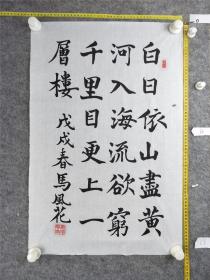 白日依山盡黄
河入海流欲窮
千里目更上一
層樓
戊戌春馬風花